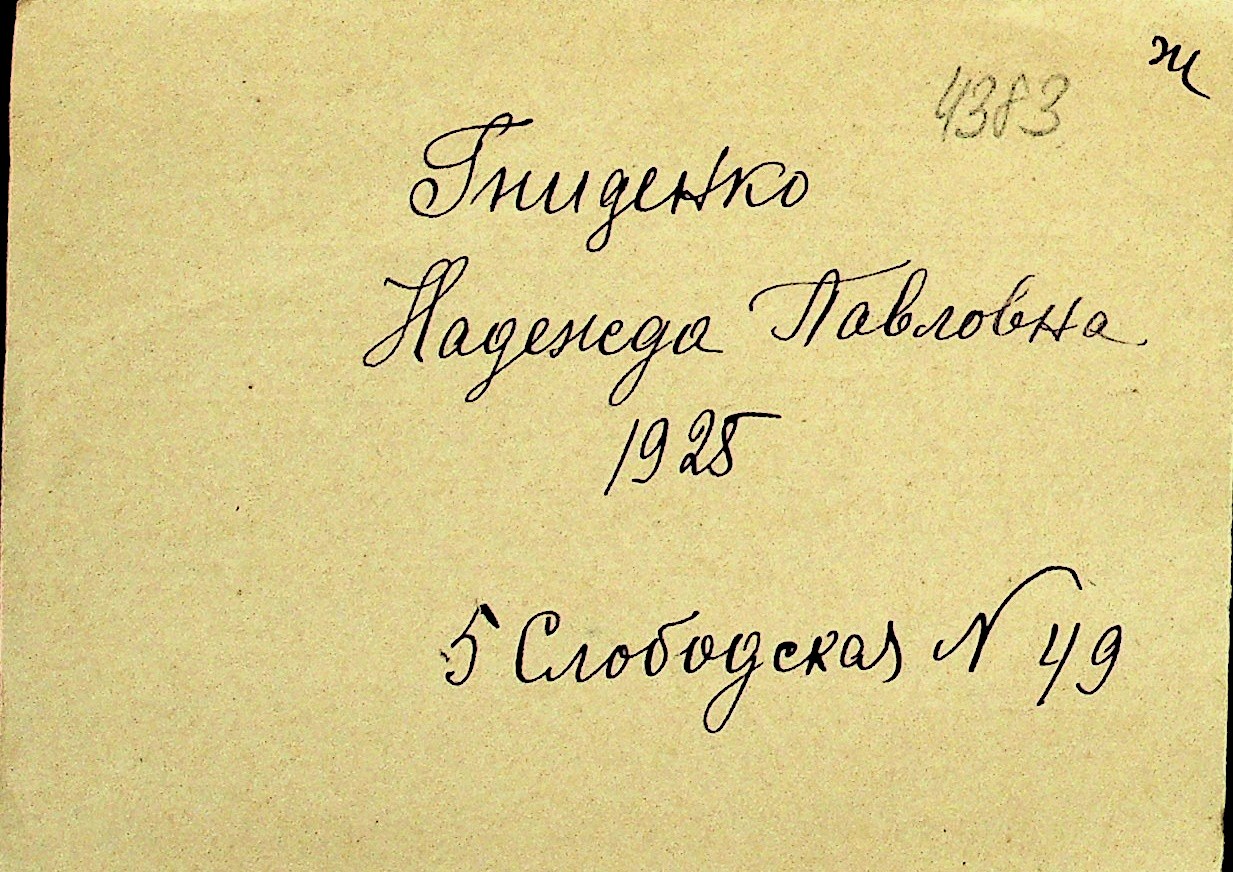 ж
4383
Гниденко
Надежда Павловна
1925
5 Слободская N 49